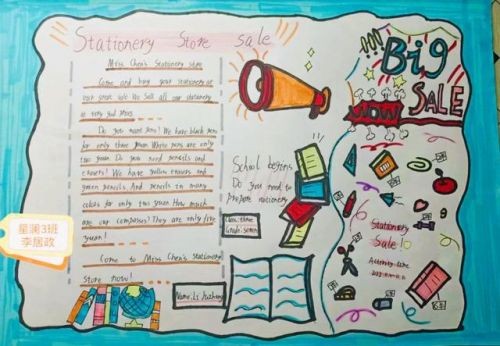 Stationery Store sale
Miss Chen's Stationery store
Come and buy your stationery at
our great sale We Sell all our stationery
at very good prices
Do you need pens? We have black pens
for only three yuan. White pens are only
two yuan. Do you need pencils and
erasers? We have yellow erasers and
green pencils. And pencils in many
colors for only two yuan. How much
are our compasses? They are only five
yuan!
Come to Miss Chen's stationery
Store now!
School begins
Do you need to
prepare stationery
Class: three
Grade: seven
Name: Li
Big
SALE
WOW
Stationery
Sale!
Activity
星澜3班
李居政